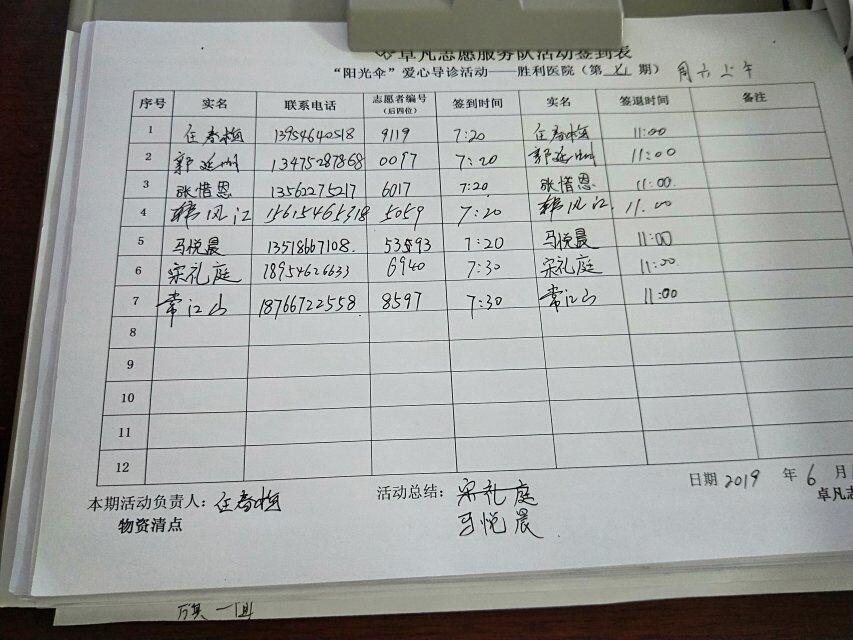 卓凡志愿服务队活动签到表
“阳光伞”爱心导诊活动——胜利医院(第 期) 周六上午
序号 实名 联系电话 志愿者编号(后四位) 签到时间 实名 签退时间 备注
1 任春梅 13954640518 9119 7:20 任春梅 11:00
2 郭延州 13475287868 0097 7:20 郭延州 11:00
3 张惜恩 13562275217 6017 7:20 张惜恩 11:00
4 韩风江 15615465318 5059 7:20 韩风江 11.00
5 马悦晨 13518667108. 53593 7:20 马悦晨 11:00
6 宋礼庭 18954626633 6940 7:30 宋礼庭 11:00
7 常江山 18766722558 8597 7:30 常江山 11:00
8
9
10
11
12
日期 2019 年 6 月
本期活动负责人:任春梅 活动总结:宋礼庭 卓凡志
物资清点 马悦晨